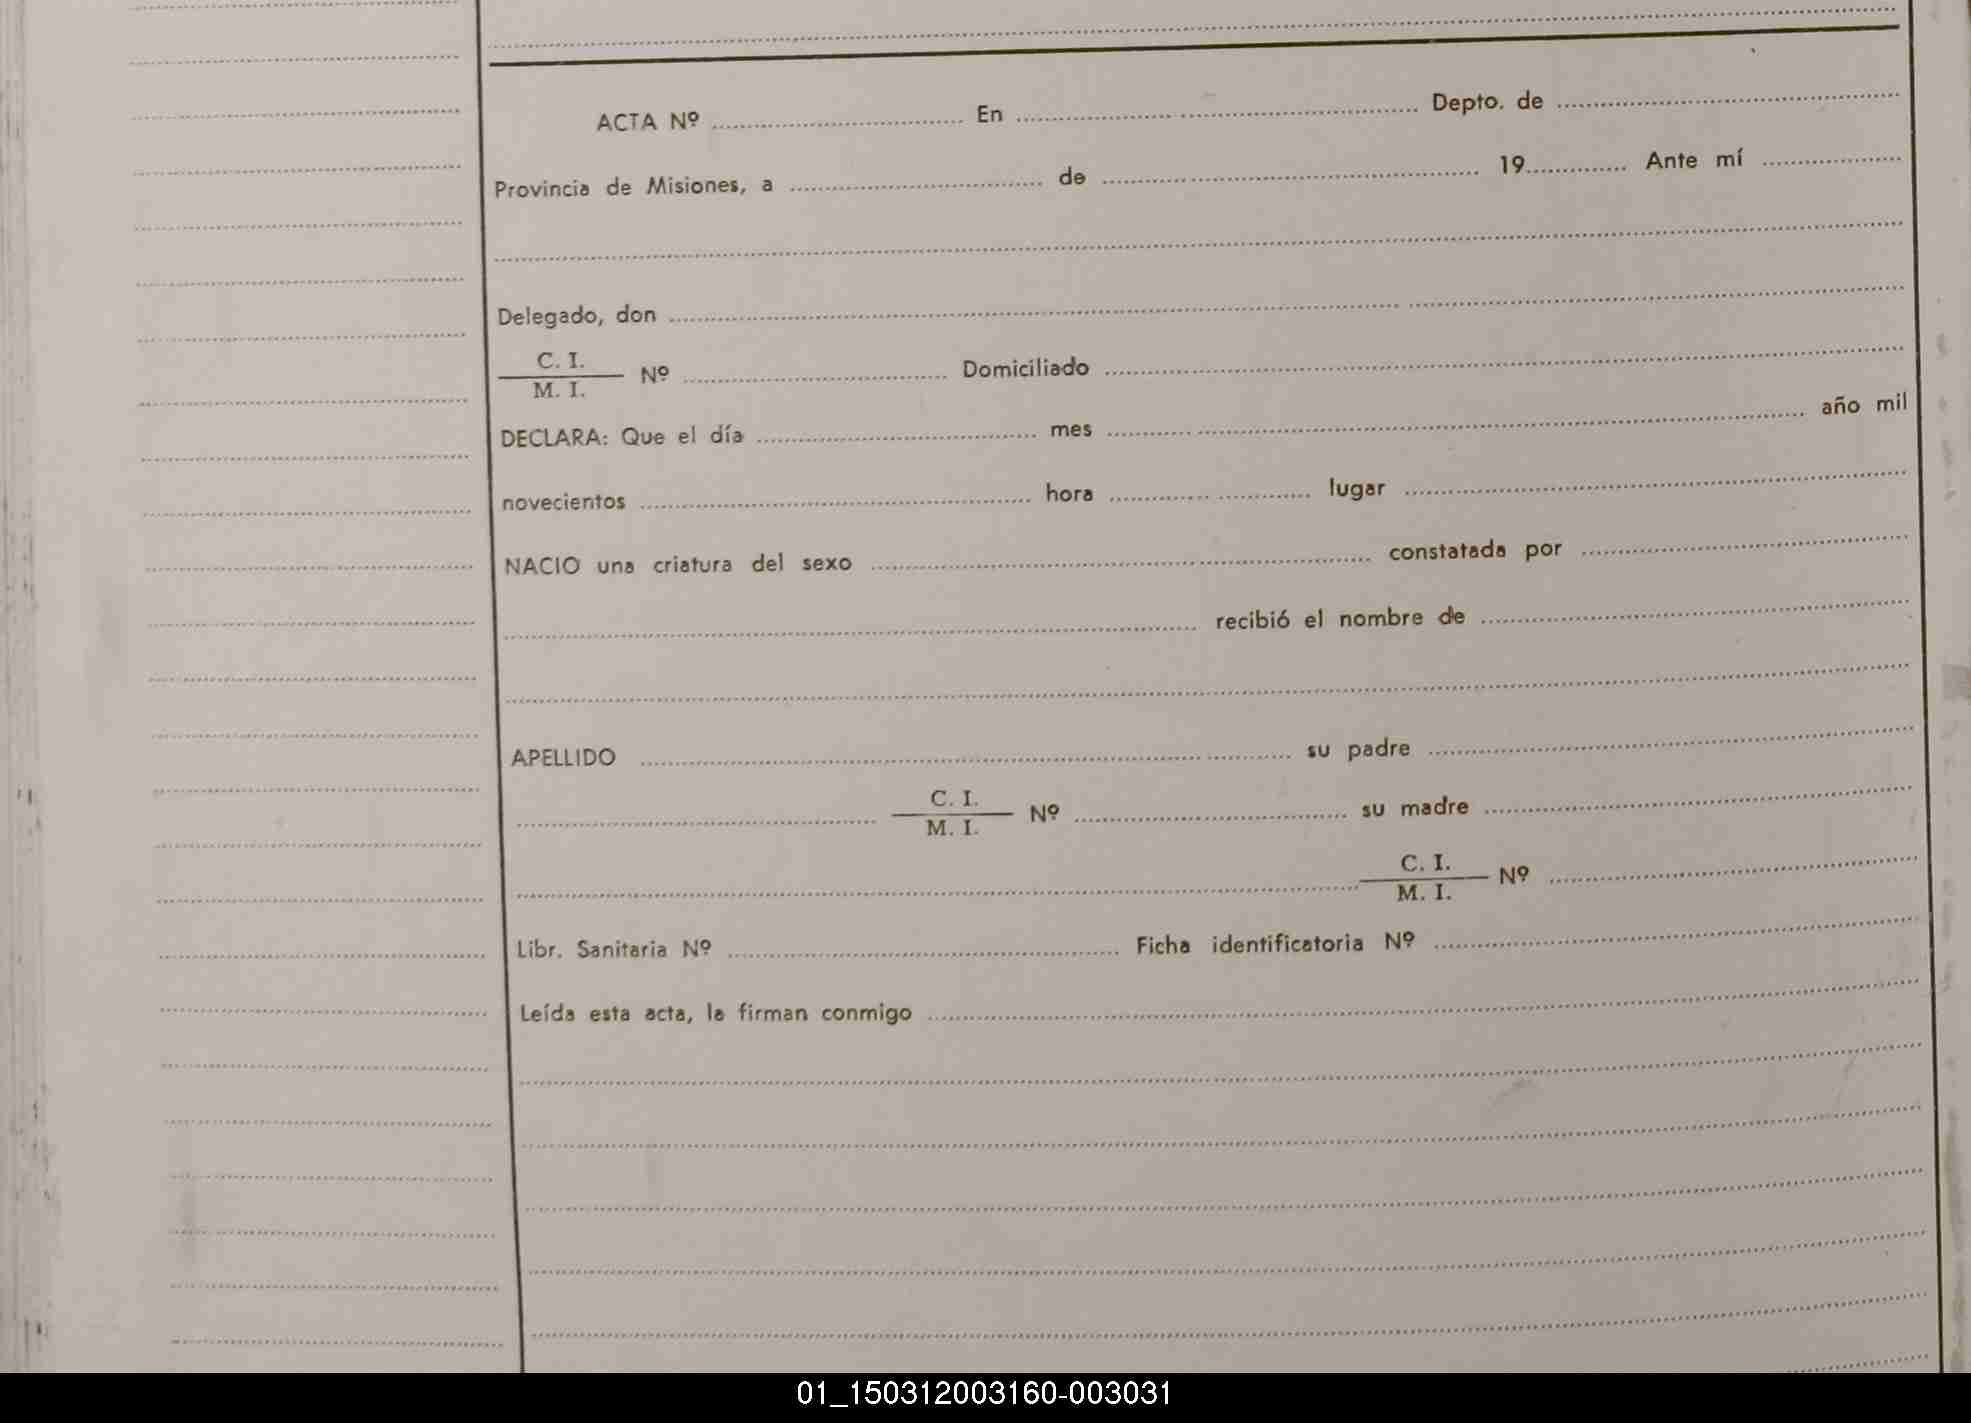 ACTA Nº ........ En ........ Depto. de ........
Provincia de Misiones, a ........ de ........ 19........ Ante mí ........
Delegado, don ........
C. I.
M. I. Nº ........ Domiciliado ........
DECLARA: Que el día ........ mes ........ año mil
novecientos ........ hora ........ lugar ........
NACIO una criatura del sexo ........ constatada por ........
........ recibió el nombre de ........
APELLIDO ........ su padre ........
C. I.
M. I. Nº ........ su madre ........
C. I.
M. I. Nº ........
Libr. Sanitaria Nº ........ Ficha identificatoria Nº ........
Leída esta acta, la firman conmigo ........
01_150312003160-003031